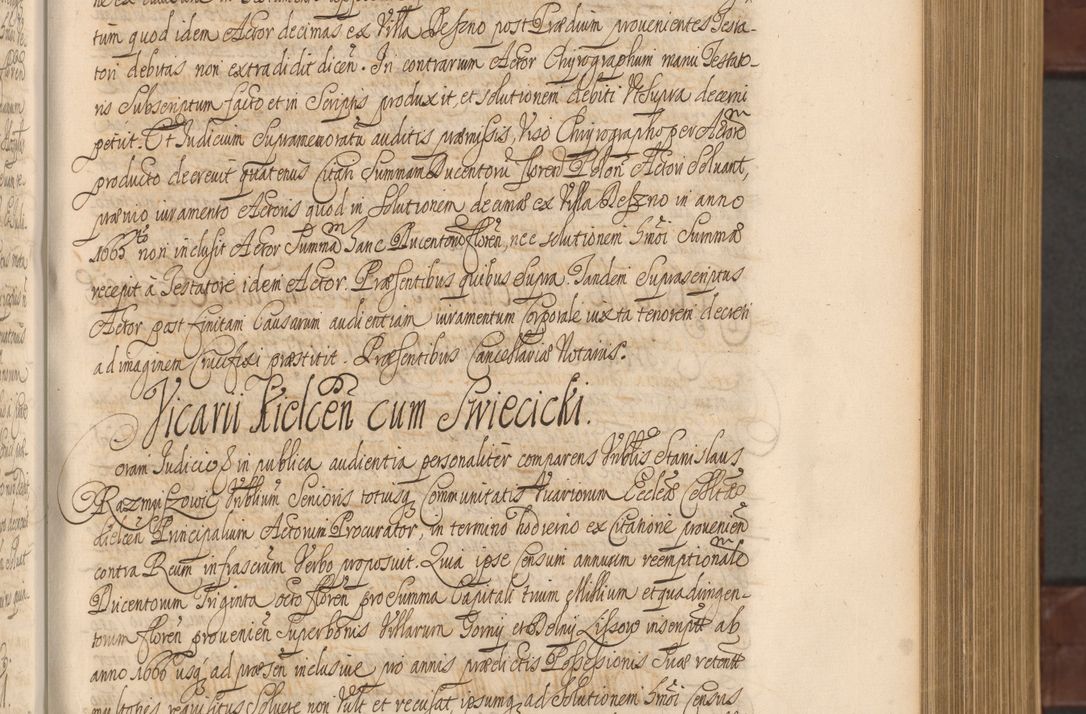 tum quod idem Actor decimas ex Villa Deszno post Prædium provenientes Testa-
tori debitas non extradidit dicen̄. In contrarium Actor Chyrographum manu Testato-
ris Subscriptum facto et in Scriptis produxit, et solutionem debiti Ut Supra decerni
petiit. Et Judicium Supramemoratū auditis præmissis, Viso Chyrographo per Actorē
producto decrevit quatenus Citati Summam Ducentorū floren̄ Polon̄ Actori Solvant,
prævio iuramento Actoris quod in Solutionem decimæ ex Villa Deszno in anno
1665to non inclusit Actor Summā hanc Ducentorū floren̄, nec solutionem hm̄oi Summæ
recepit à Testatore idem Actor. Præsentibus quibus Supra. Tandem Suprascriptus
Actor post finitam Causarum audientiam iuramentum Corporale iuxta tenorem decreti
ad imaginem Crucifixi præstitit. Præsentibus Cancellariæ Notariis.
Vicarii Kielcen̄ cum Swiecicki.
Coram Judicio & in publica audientia personaliter comparens Vnblīs Stanislaus
Razmuszowic Vnblium Senioris totiusq Communitatis Vicariorum Ecclæ Colltæ
Kielcen̄ Principalium Actorum Procurator, in termino hodierno ex Citatione provenien̄
contra Reum infrascrum Verbo proposuit. Quia ipse Censum annuum reemptionalē
Ducentorum Triginta octo floren̄ pro Summa Capitali trium Millium et quadringen-
torum floren̄ provenien̄ Super bonis Villarum Gornij et Dolnij Lissow inscript ab
anno 1666 usq ad præsen̄ inclusive pro annis prædictis Possessionis Suæ retent
multoties requisitus Solvere non Vult et recusat, ipsumq ad Solutionem hm̄oi Census